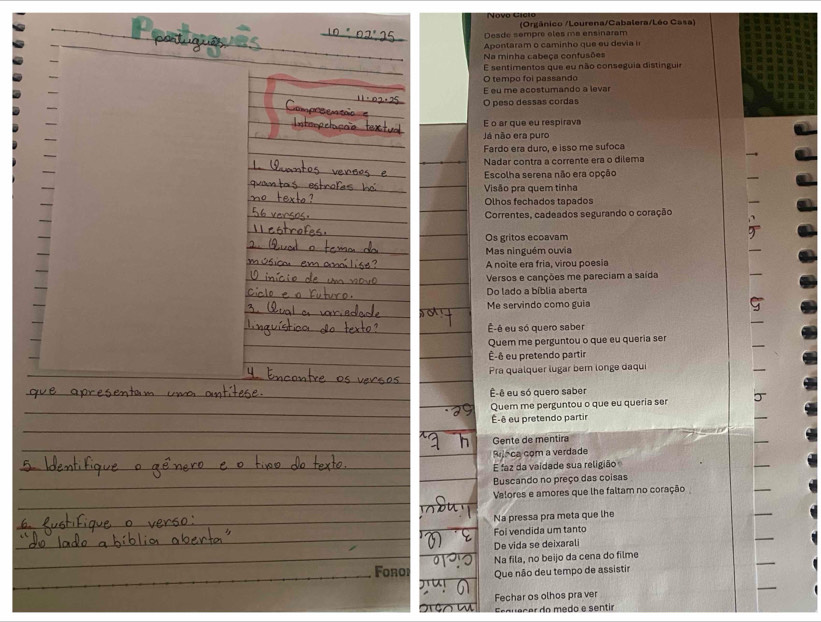 Português
português
10.02.25
11.02.25
Compreensão e
Interpretação textual
1. Quantos versos e
quantas estrofes há
no texto?
56 versos.
11 estrofes.
2. Qual o tema da
música em análise?
O início de um novo
ciclo e o futuro.
3. Qual a variedade
linguística do texto?
4 Encontre os versos
que apresentam uma antítese.
5. Identifique o gênero e o tipo do texto.
6. Justifique o verso:
"do lado a bíblia aberta"
Foroni
Novo Ciclo
(Orgânico /Lourena/Cabalera/Léo Casa)
Desde sempre eles me ensinaram
Apontaram o caminho que eu devia ir
Na minha cabeça confusões
E sentimentos que eu não conseguia distinguir
O tempo foi passando
E eu me acostumando a levar
O peso dessas cordas
E o ar que eu respirava
Já não era puro
Fardo era duro, e isso me sufoca
Nadar contra a corrente era o dilema
Escolha serena não era opção
Visão pra quem tinha
Olhos fechados tapados
Correntes, cadeados segurando o coração
Os gritos ecoavam
Mas ninguém ouvia
A noite era fria, virou poesia
Versos e canções me pareciam a saída
Do lado a bíblia aberta
Me servindo como guia
Ê-ê eu só quero saber
Quem me perguntou o que eu queria ser
Ê-ê eu pretendo partir
Pra qualquer lugar bem longe daqui
Ê-ê eu só quero saber
Quem me perguntou o que eu queria ser
Ê-ê eu pretendo partir
Gente de mentira
com a verdade
E faz da vaidade sua religião
Buscando no preço das coisas
Valores e amores que lhe faltam no coração
Na pressa pra meta que lhe
Foi vendida um tanto
De vida se deixarali
Na fila, no beijo da cena do filme
Que não deu tempo de assistir
Fechar os olhos pra ver
Esquecer do medo e sentir